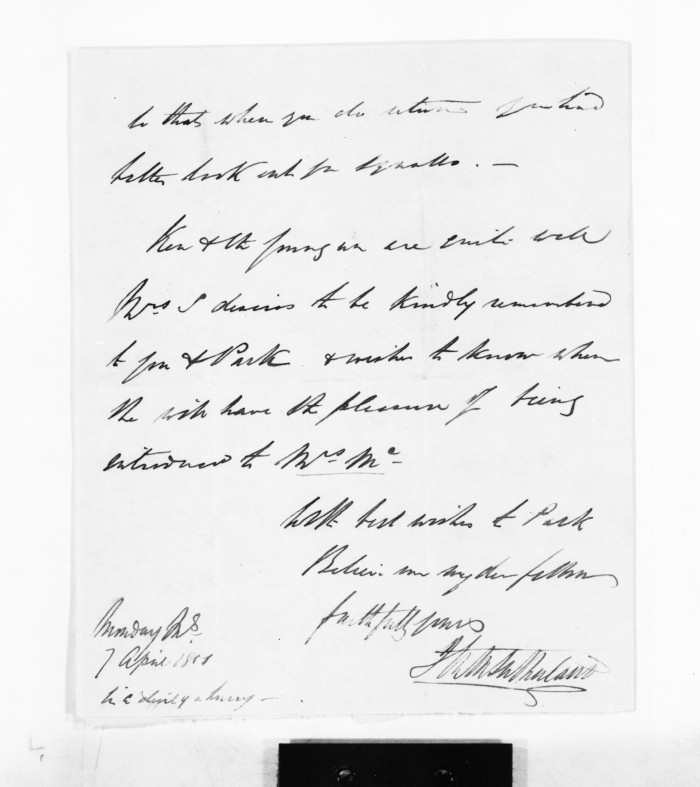 so that when you do return you had
better look out for squalls. —
Ken & the young un are quite well
Mrs S desires to be kindly remembered
to you & Park & wishes to know when
she will have the pleasure of being
introduced to Mrs Mc —
With best wishes to Park
Believe me my dear fellow
faithfully yours
Sutherland
Monday Mg.
7 April
in a devil of a hurry —